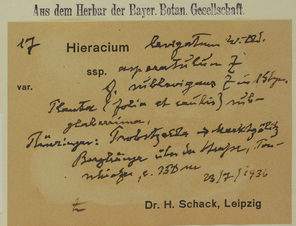 Aus dem Herbar der Bayer. Botan. Gesellschaft.
17 Hieracium laevigatum W.
ssp. asperatulum Z
var. f. sublaevigans Z
Planta (folia et caulis) sub-
glaberrima,
Thüringen: Probstzella → Marktgölitz
Berghänge über der Straße, Ton-
schiefer, c.
23/7/1936
Dr. H. Schack, Leipzig